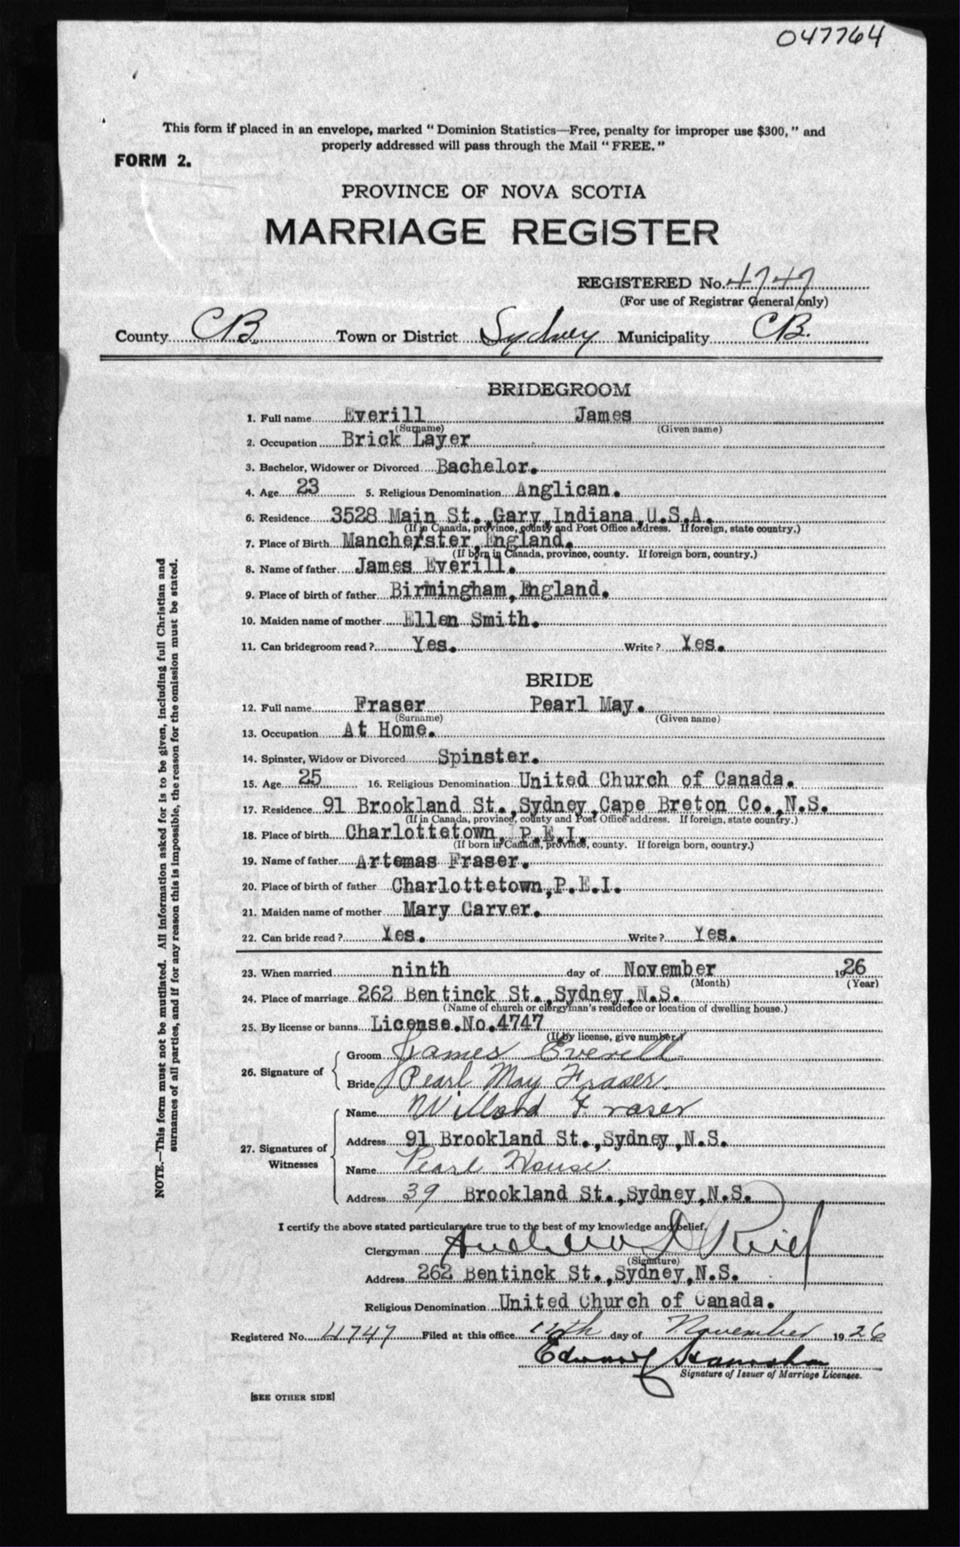 047764
This form if placed in an envelope, marked "Dominion Statistics—Free, penalty for improper use $300," and
properly addressed will pass through the Mail "FREE."
FORM 2.
PROVINCE OF NOVA SCOTIA
MARRIAGE REGISTER
REGISTERED No. 4747
(For use of Registrar General only)
County CB. Town or District Sydney Municipality CB.
BRIDEGROOM
1. Full name Everill James
(Surname) (Given name)
2. Occupation Brick Layer
3. Bachelor, Widower or Divorced Bachelor.
4. Age 23 5. Religious Denomination Anglican.
6. Residence 3528 Main St., Gary, Indiana, U.S.A.
(If in Canada, province, county and Post Office address. If foreign, state country.)
7. Place of Birth Mancherster, England.
(If born in Canada, province, county. If foreign born, country.)
8. Name of father James Everill.
9. Place of birth of father Birmingham, England.
10. Maiden name of mother Ellen Smith.
11. Can bridegroom read? Yes. Write? Yes.
BRIDE
12. Full name Fraser Pearl May.
(Surname) (Given name)
13. Occupation At Home.
14. Spinster, Widow or Divorced Spinster.
15. Age 25 16. Religious Denomination United Church of Canada.
17. Residence 91 Brookland St., Sydney, Cape Breton Co., N.S.
(If in Canada, province, county and Post Office address. If foreign, state country.)
18. Place of birth Charlottetown, P.E.I.
(If born in Canada, province, county. If foreign born, country.)
19. Name of father Artemas Fraser.
20. Place of birth of father Charlottetown, P.E.I.
21. Maiden name of mother Mary Carver.
22. Can bride read? Yes. Write? Yes.
23. When married ninth day of November 1926
(Month) (Year)
24. Place of marriage 262 Bentinck St., Sydney, N.S.
(Name of church or clergyman's residence or location of dwelling house.)
25. By license or banns License. No. 4747
(If by license, give number.)
26. Signature of
Groom James Everill
Bride Pearl May Fraser.
27. Signatures of
Witnesses
Name Willard Fraser
Address 91 Brookland St., Sydney, N.S.
Name Pearl House
Address 39 Brookland St., Sydney, N.S.
I certify the above stated particulars are true to the best of my knowledge and belief.
Clergyman
(Signature)
Address 262 Bentinck St., Sydney, N.S.
Religious Denomination United Church of Canada.
Registered No. 4747 Filed at this office 12th day of November 1926
Edward
Signature of Issuer of Marriage Licenses.
[SEE OTHER SIDE]
NOTE.—This form must not be mutilated. All information asked for is to be given, including full Christian and
surnames of all parties, and if for any reason this is impossible, the reason for the omission must be stated.